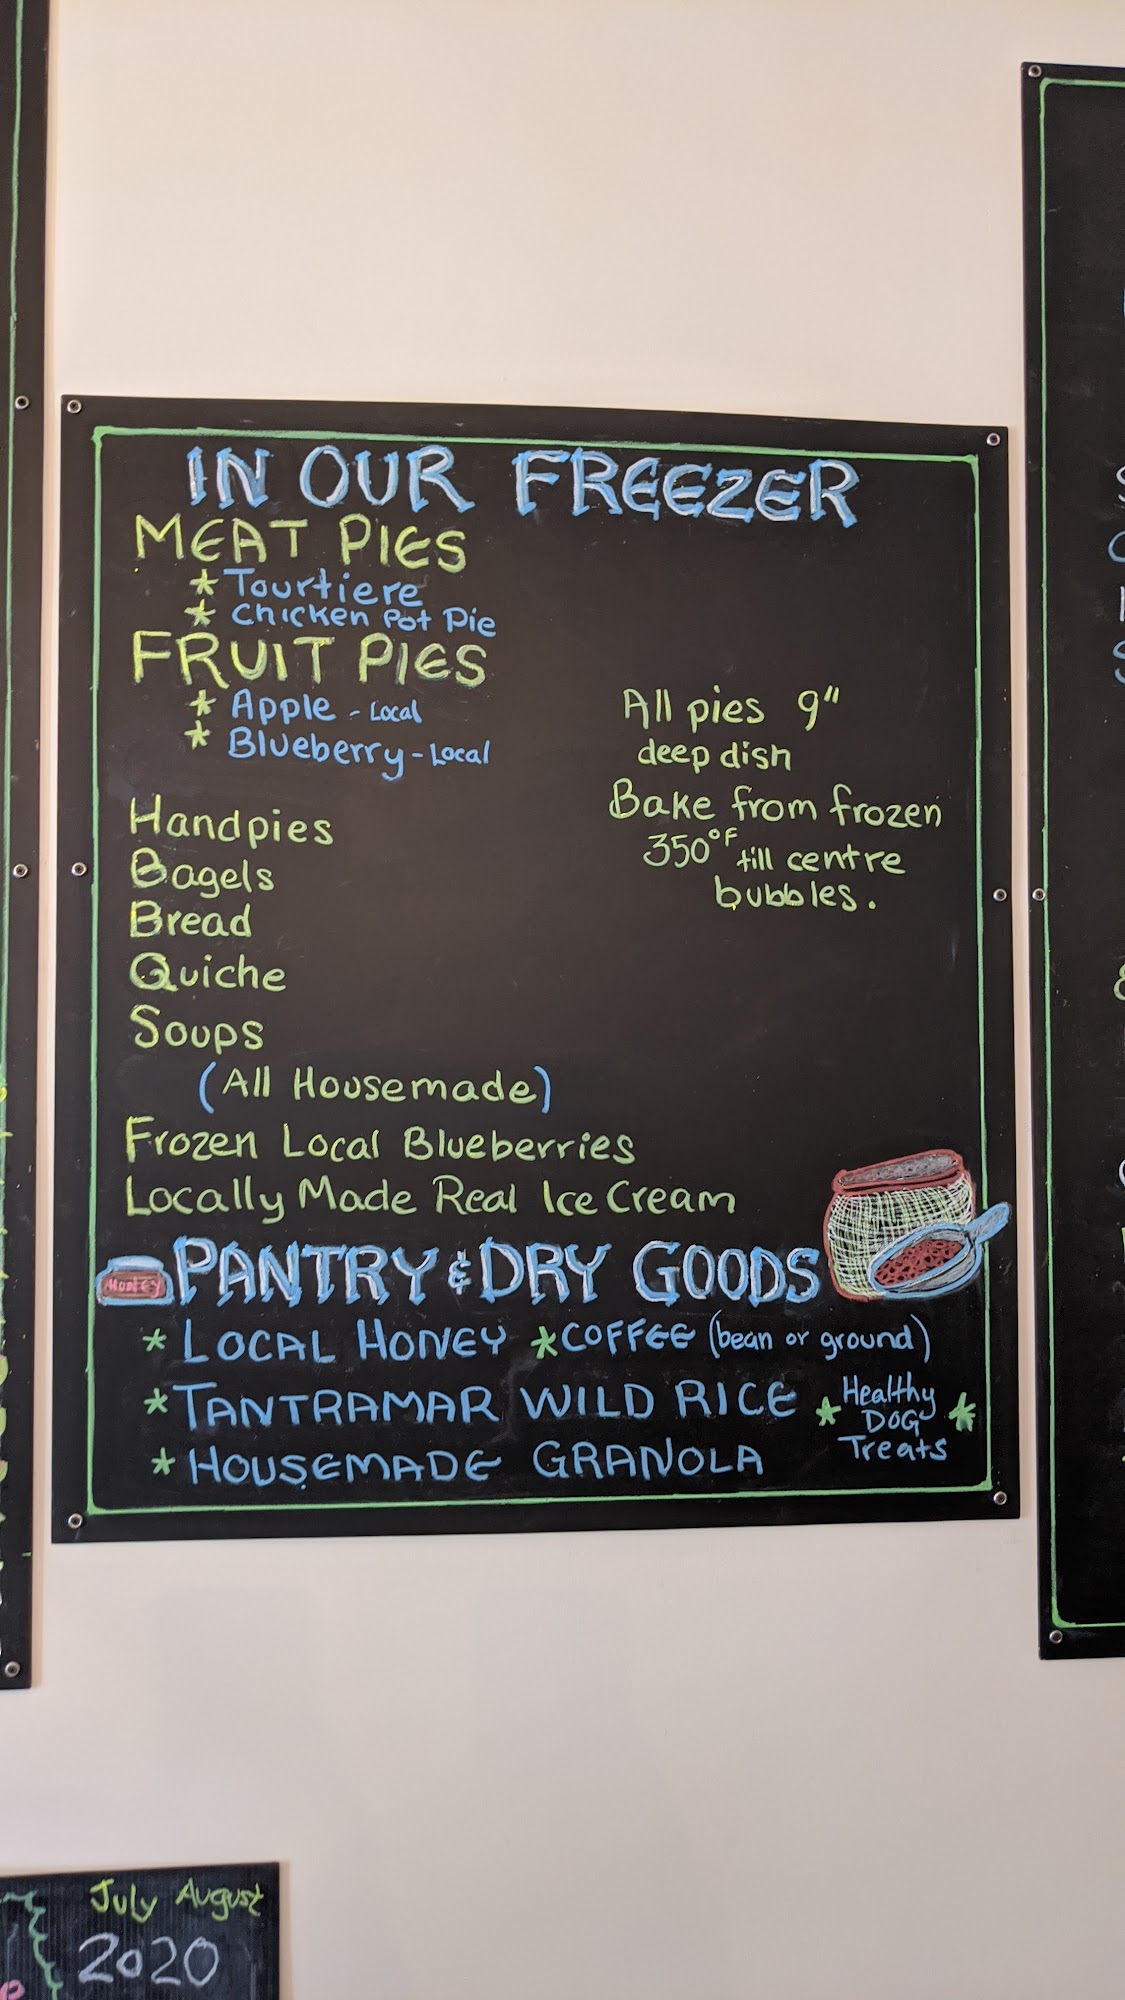 IN OUR FREEZER
MEAT PIES
* Tourtiere
* Chicken Pot Pie
FRUIT PIES
* Apple - Local
* Blueberry - Local
All pies 9"
deep dish
Bake from frozen
350°F till centre
bubbles.
Handpies
Bagels
Bread
Quiche
Soups
(All Housemade)
Frozen Local Blueberries
Locally Made Real Ice Cream
HONEY
PANTRY & DRY GOODS
* LOCAL HONEY * COFFEE (bean or ground)
* TANTRAMAR WILD RICE * Healthy
DOG *
Treats
* HOUSEMADE GRANOLA
July August
2020